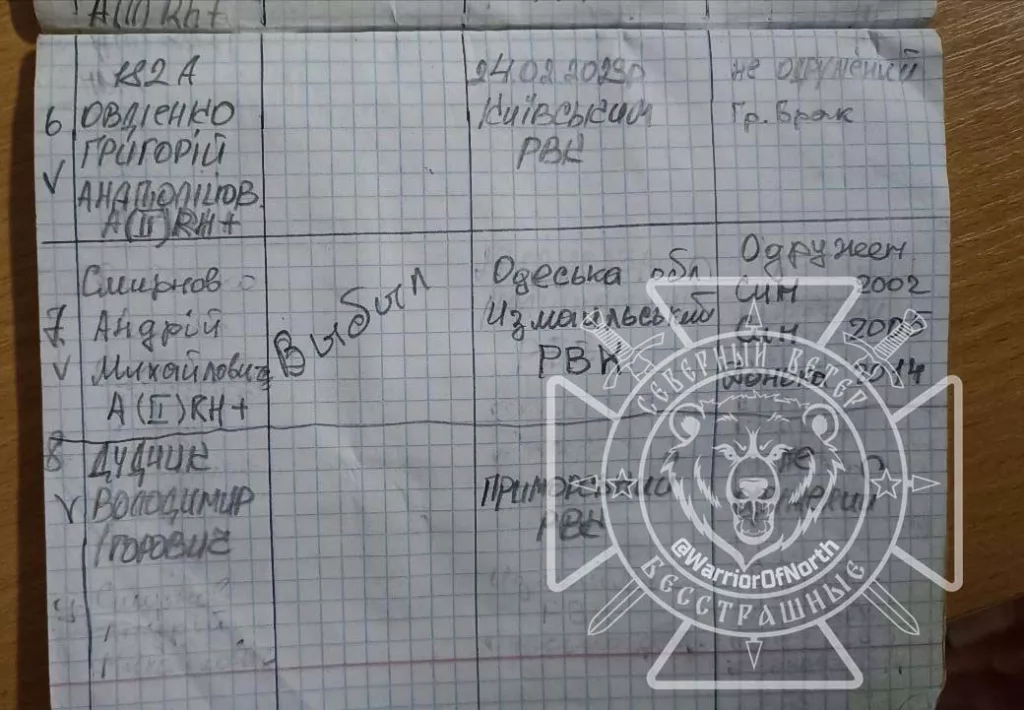 A(II) Rh+
182 А
24.02.2023р
не одружений
6
ОВДІЕНКО
Київським
Гр. Брак
ГРИГОРІЙ
РВК
V
АНАТОЛІЙОВ.
А(II) RH+
Смирнов
Одеська обл
Одружен
син 2002
7
Андрій
Выбыл
Измаильський
син
V
Михайлович
РВК
2014
А (II) RH+
8
ДУДЧИК
не
V
ВОЛОДИМИР
РВК
ІГОРОВИЧ
СЕВЕРНЫЙ ВЕТЕР
@WarriorOfNorth
БЕССТРАШНЫЕ